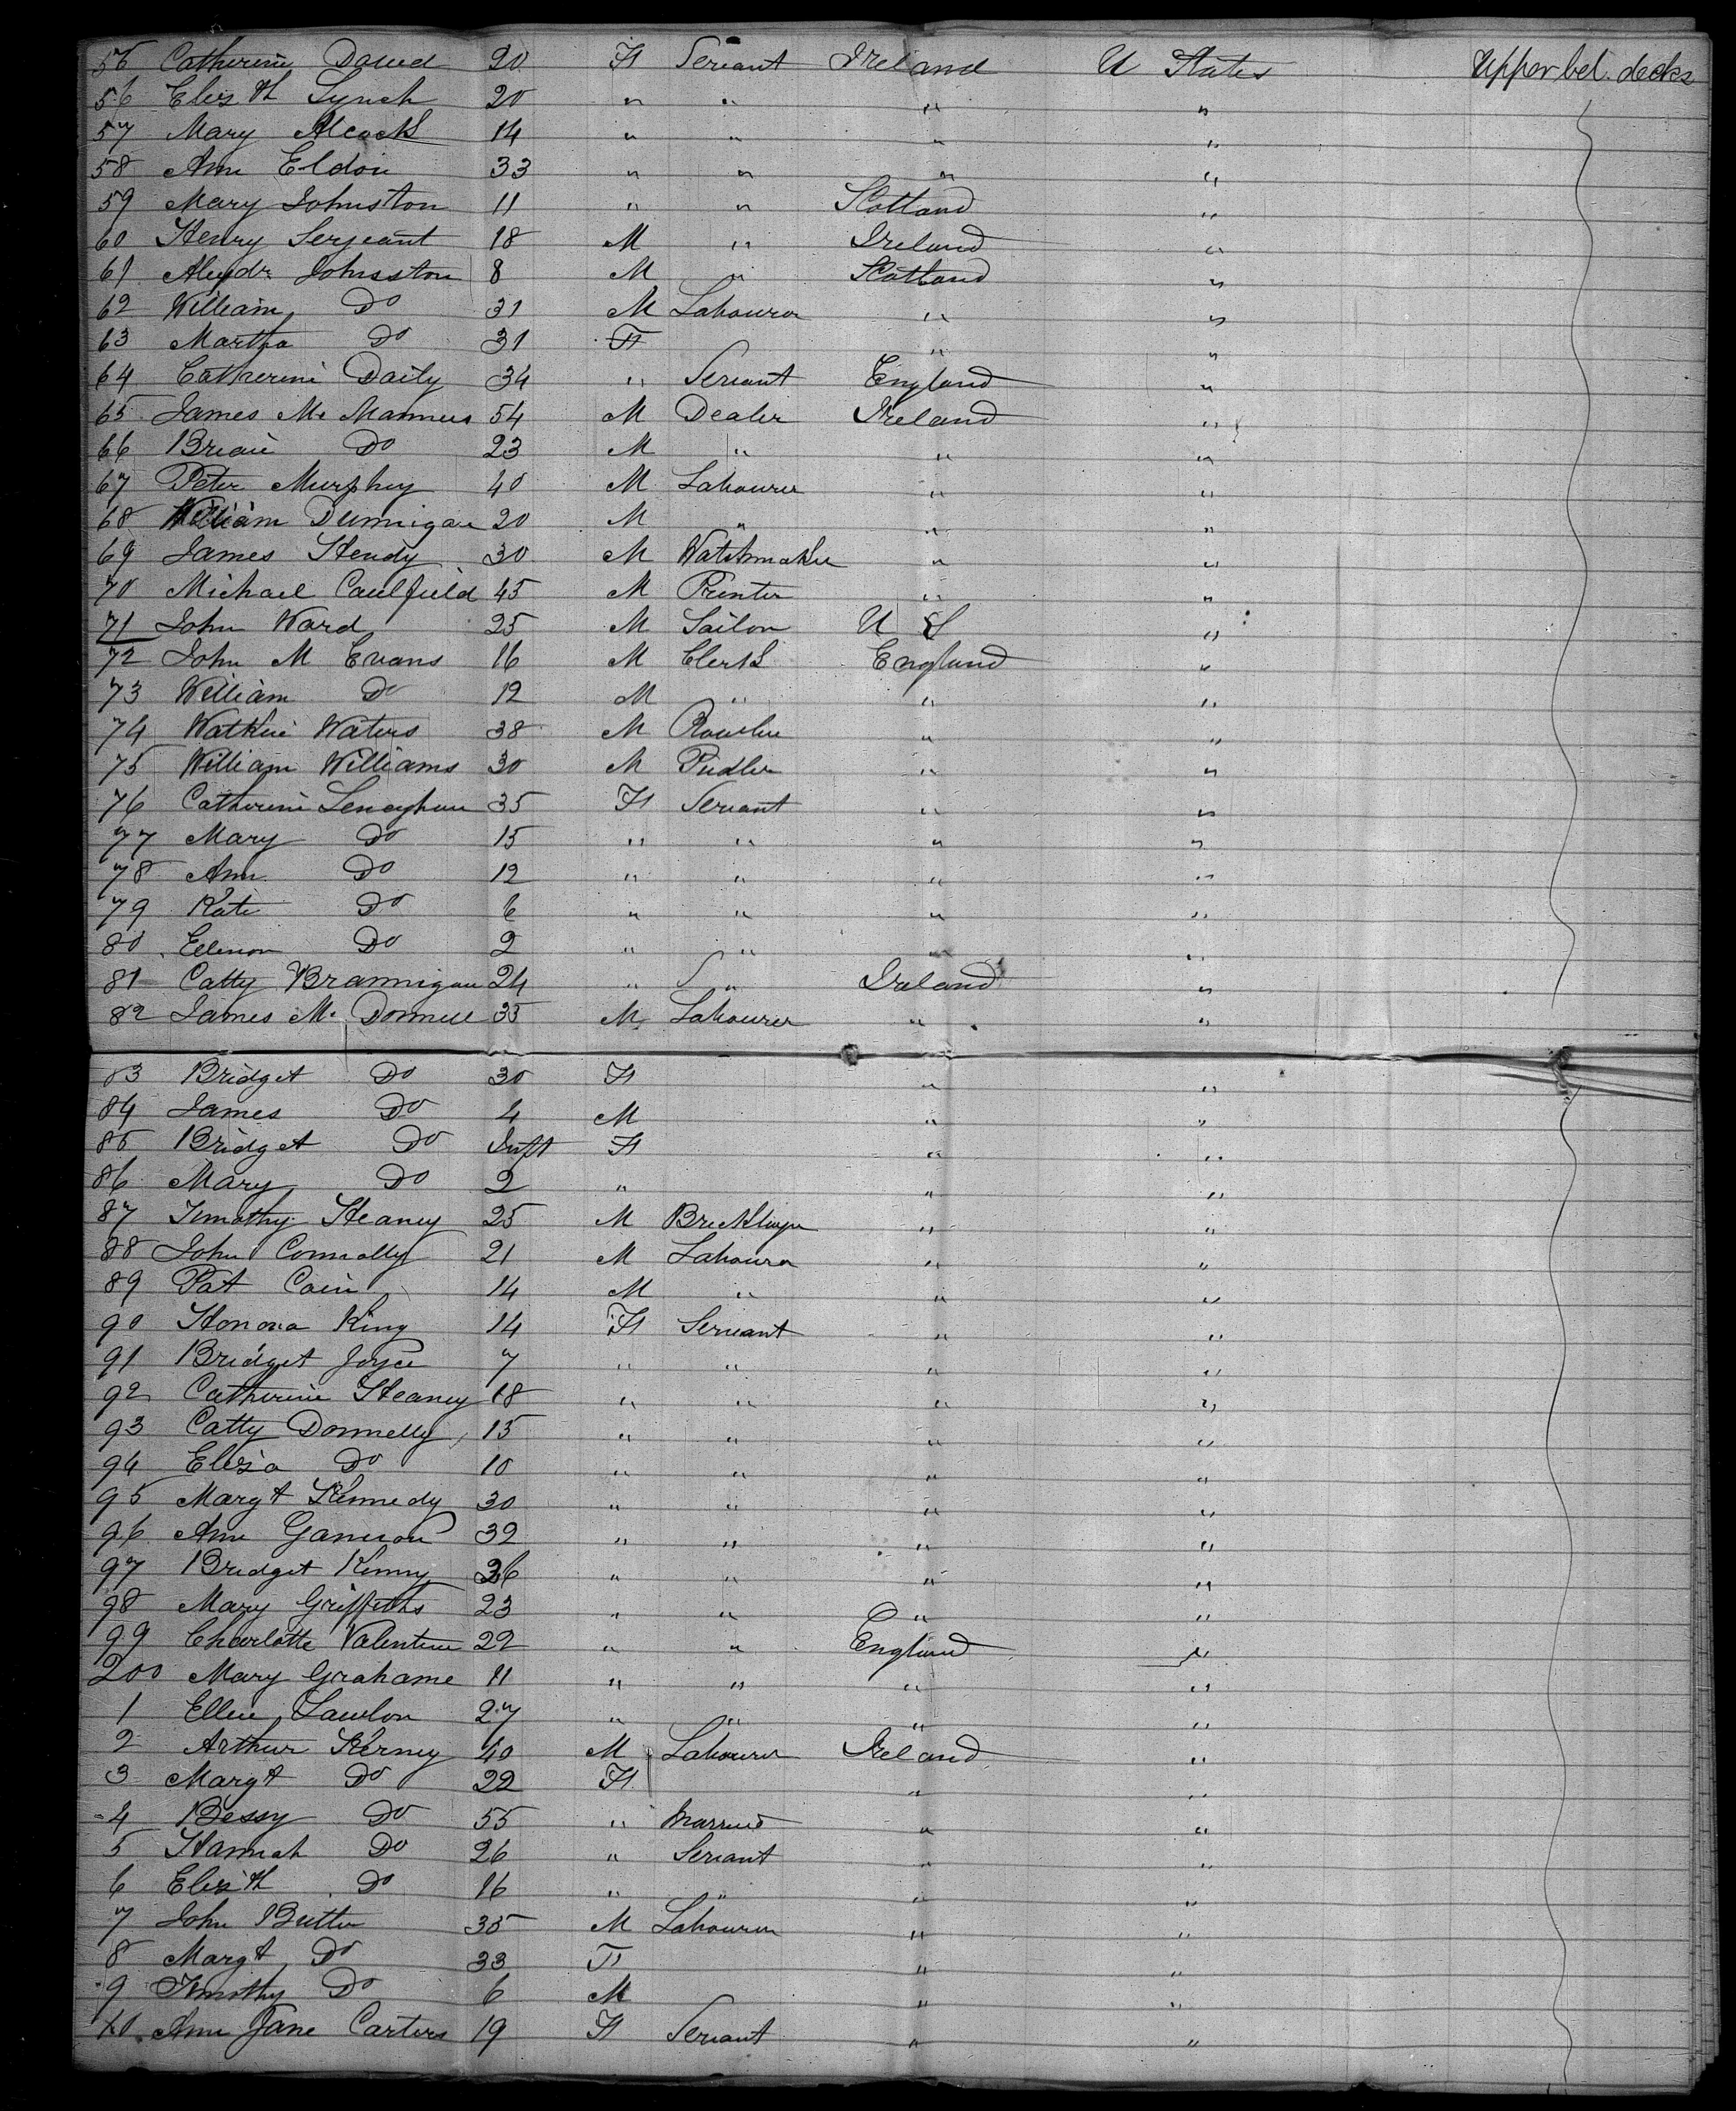 55 Catherine Dowd 20 F Servant Ireland U States Upper bet. decks
56 Elizth Lynch 20 " " " "
57 Mary 14 " " " "
58 Ann Eldon 33 " " " "
59 Mary Johnston 11 " " Scotland "
60 Henry Serjeant 18 M " Ireland "
61 Alexdr Johnston 8 M " Scotland "
62 William Do 31 M Labourer " "
63 Martha Do 31 F " "
64 Catherine Daily 34 " Servant England "
65 James Mc Mannus 54 M Dealer Ireland "
66 Brian Do 23 M " " "
67 Peter Murphy 40 M Labourer " "
68 William Dunnigan 20 M " " "
69 James Hendy 30 M Watchmaker " "
70 Michael Caulfield 45 M Printer " "
71 John Ward 25 M Sailor U S "
72 John M Evans 16 M Clerk England "
73 William Do 12 M " " "
74 Watkin Waters 38 M " "
75 William Williams 30 M Pudler " "
76 Catherine Lenaghan 35 F Servant " "
77 Mary Do 15 " " " "
78 Ann Do 12 " " " "
79 Kate Do 6 " " " "
80 Ellenor Do 2 " " " "
81 Catty Brannigan 24 " " Ireland "
82 James Mc Donnell 35 M Labourer " "
83 Bridget Do 30 F " "
84 James Do 4 M " "
85 Bridget Do Inft F " "
86 Mary Do 2 " " "
87 Timothy Heaney 25 M Bricklayer " "
88 John Connolly 21 M Labourer " "
89 Pat Cain 14 M " " "
90 Honora King 14 F Servant " "
91 Bridget Joyce 7 " " " "
92 Catherine Heaney 18 " " " "
93 Catty Donnelly 15 " " " "
94 Eliza Do 10 " " " "
95 Margt Kennedy 30 " " " "
96 Ann 32 " " " "
97 Bridget Kenny 26 " " " "
98 Mary Griffiths 23 " " " "
99 Charlotte Valentine 22 " " England "
200 Mary Grahame 11 " " " "
1 Ellen Lawlor 27 " " " "
2 Arthur Kerney 40 M Labourer Ireland "
3 Margt Do 22 F " "
4 Bessy Do 55 " Married " "
5 Hannah Do 26 " Servant " "
6 Elizth Do 16 " " " "
7 John Butler 35 M Labourer " "
8 Margt Do 33 F " "
9 Timothy Do 6 M " "
10 Ann Jane Carters 19 F Servant " "